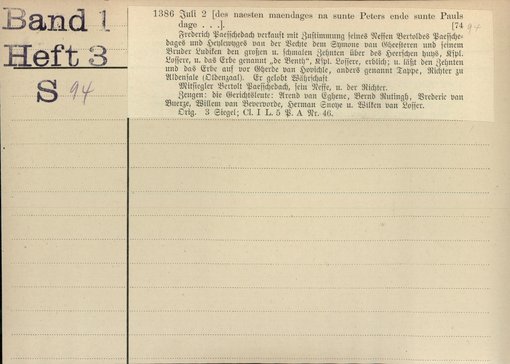 Band 1
Heft 3
S 94
1386 Juli 2 [des naesten maendages na sunte Peters ende sunte Pauls
dage . . .]. [74 94
Frederich Paesschedach verkauft mit Zustimmung seines Neffen Bertoldes Paessche-
dages und Heylewyges van der Vechte dem Symone van Gheesteren und seinem
Bruder Ludiken den großen u. schmalen Zehnten über des Heerschen huys, Kspl.
Lossere, u. das Erbe genannt „de Benth“, Kspl. Lossere, erblich; u. läßt den Zehnten
und das Erbe auf vor Gherde van Hovichle, anders genannt Tappe, Richter zu
Aldensale (Oldenzaal). Er gelobt Währschaft
Mitsiegler Bertolt Paesschedach, sein Neffe, u. der Richter.
Zeugen: die Gerichtsleute: Arend van Eghene, Bernd Rutingh, Vrederic van
Buerze, Willem van Bevervorde, Herman Snoye u. Wilken van Losser.
Orig. 3 Siegel; Cl. I L. 5 P. A Nr. 46.